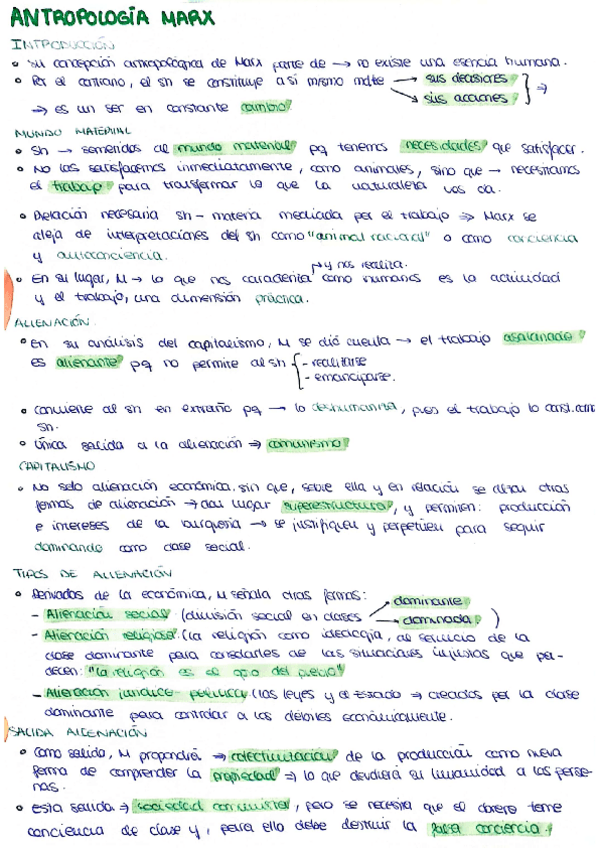 ANTROPOLOGÍA MARX
INTRODUCCIÓN
• Su concepción antropológica de Marx parte de → no existe una esencia humana.
• Por el contrario, el sh se constituye a sí mismo mdte → sus decisiones
→ sus acciones ⇒
⇒ es un ser en constante cambio
MUNDO MATERIAL
• Sh → sometidos al mundo material pq tenemos necesidades que satisfacer.
• No las satisfacemos inmediatamente, como animales, sino que → necesitamos
el trabajo para transformar lo que la naturaleza nos da.
• Relación necesaria sh - materia mediada por el trabajo ⇒ Marx se
aleja de interpretaciones del sh como "animal racional" o como conciencia
y autoconciencia.
y nos realiza.
• En su lugar, M → lo que nos caracteriza como humanos es la actividad
y el trabajo, una dimensión práctica.
ALIENACIÓN
• En su análisis del capitalismo, M se dió cuenta → el trabajo asalariado
es alienante pq no permite al sh { - realizarse
- emanciparse.
• convierte al sh en extraño pq → lo deshumaniza, pues el trabajo lo const. como
sh.
• única salida a la alienación ⇒ comunismo
CAPITALISMO
• No solo alienación económica sin que, sobre ella y en relación se dan otras
formas de alienación → dan lugar superestructura, y permiten: producción
e intereses de la burguesía → se justifiquen y perpetúen para seguir
dominando como clase social.
TIPOS DE ALIENACIÓN
• Derivados de la económica, M señala otras formas:
- Alienación social (división social en clases → dominante
→ dominada)
- Alienación religiosa (la religión como ideología, al servicio de la
clase dominante para consolarles de las situaciones injustas que pa-
decen: "la religión es el opio del pueblo"
- Alienación jurídico-política (las leyes y el Estado ⇒ creados por la clase
dominante para controlar a los débiles económicamente.
SALIDA ALIENACIÓN
• Como salida, M propondrá ⇒ colectivización de la producción como nueva
forma de comprender la propiedad ⇒ lo que devolvería su humanidad a las perso-
nas.
• esta salida ⇒ sociedad comunista, pero se necesita que el obrero tome
conciencia de clase y, para ello debe destruir la falsa conciencia.